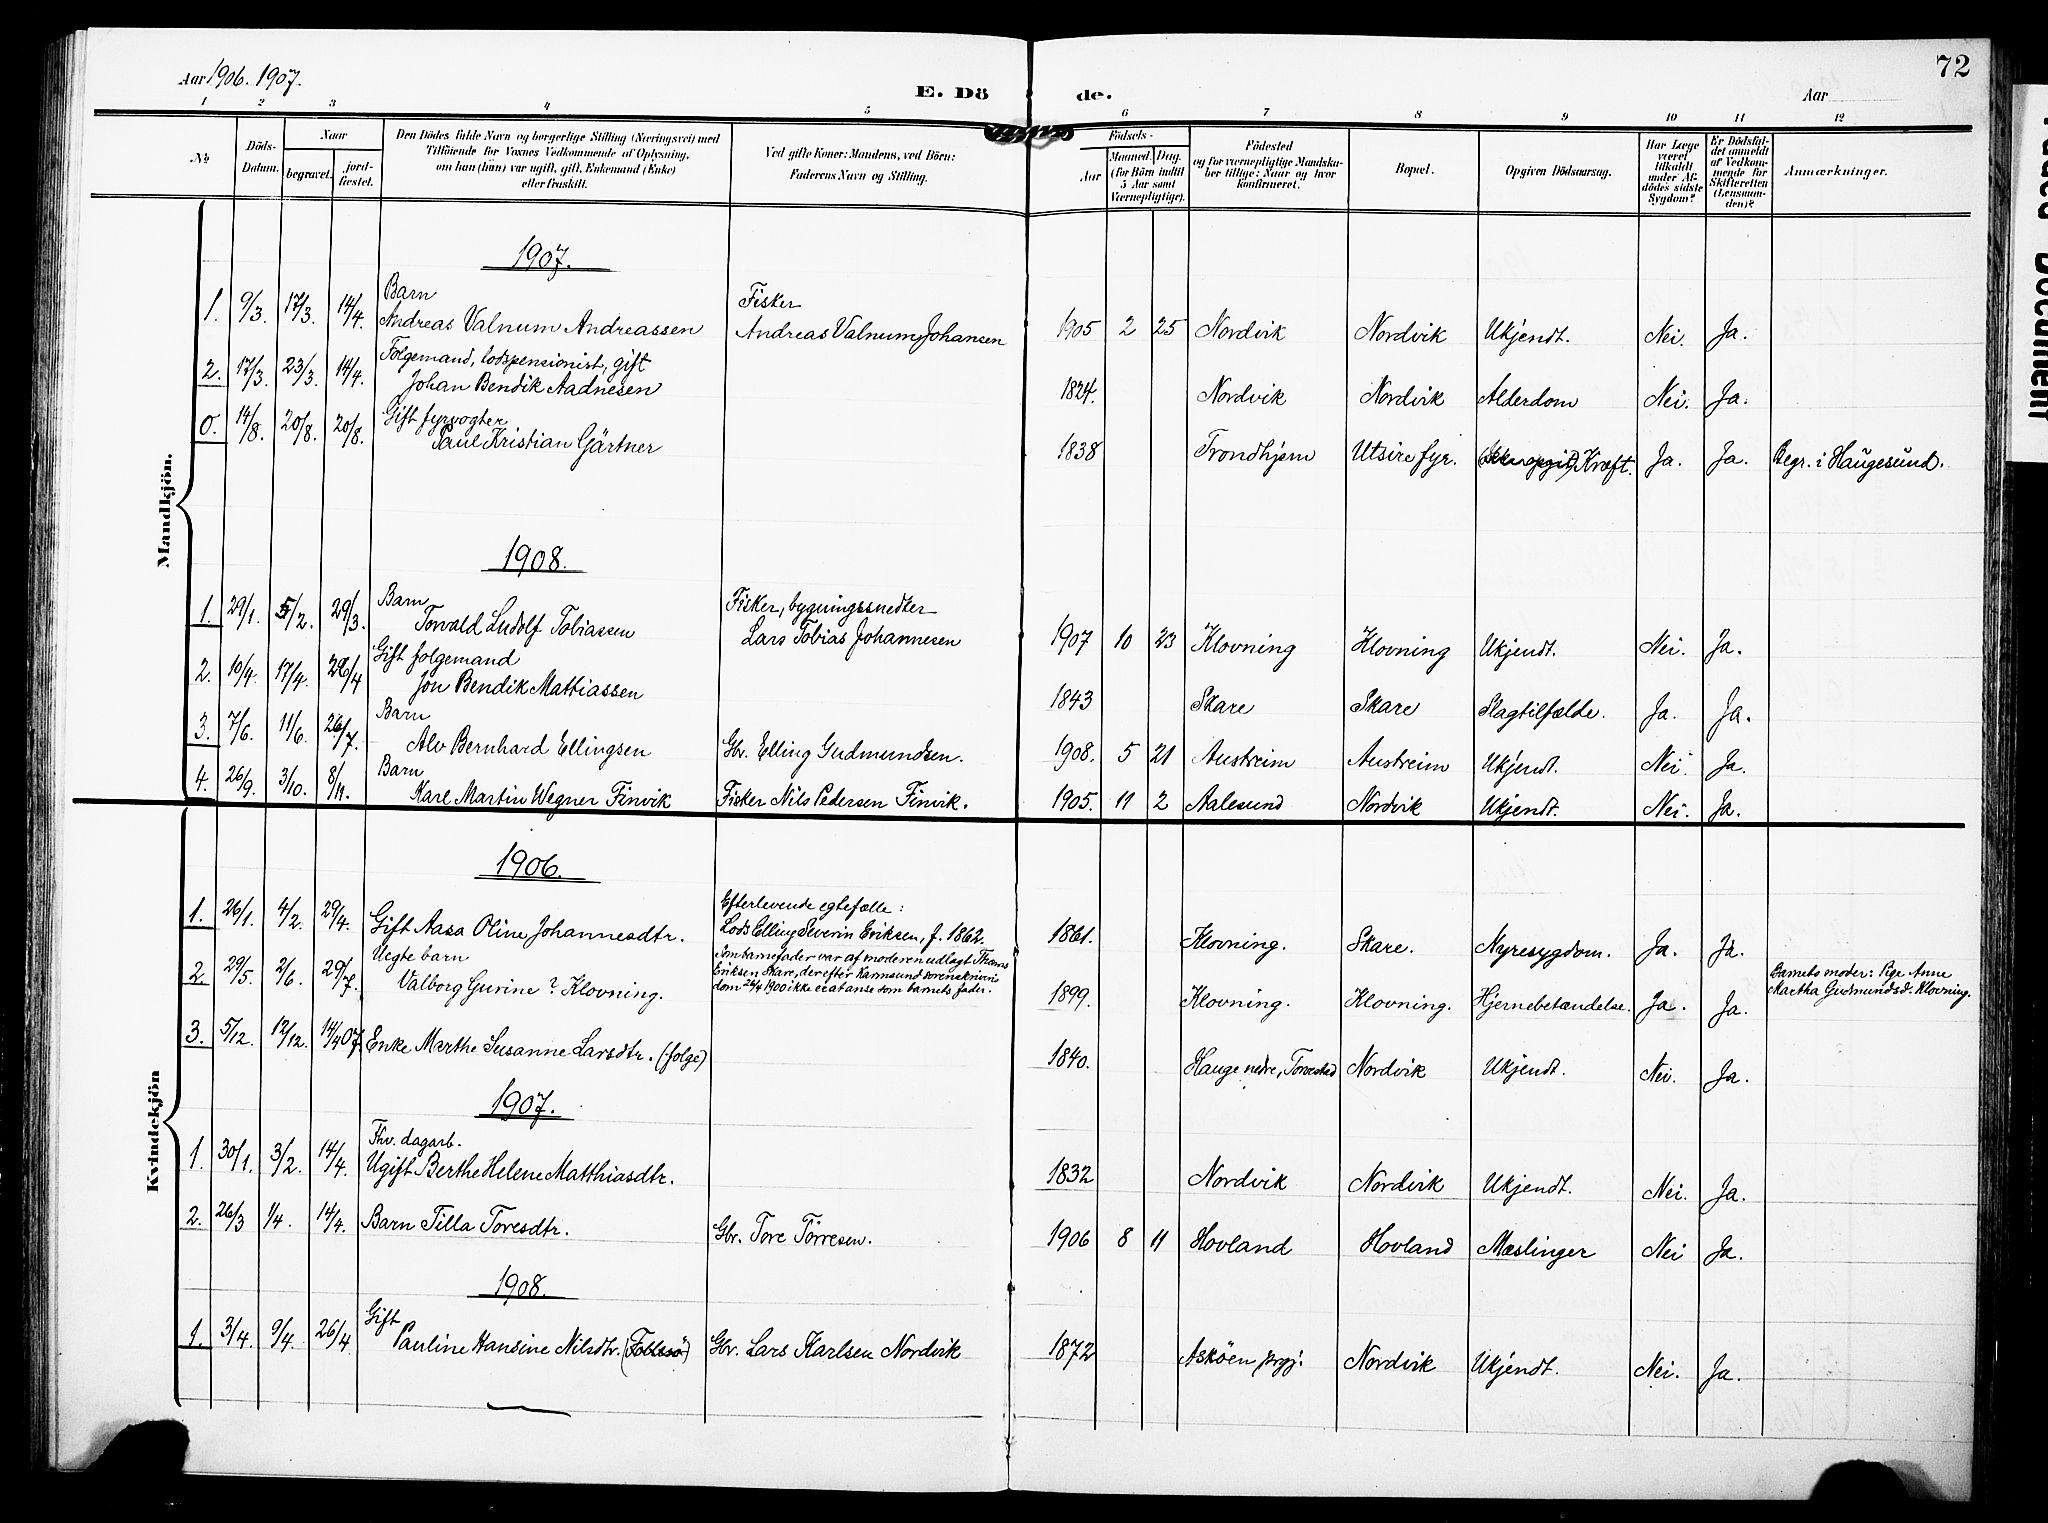 Aar 1906. 1907.
E. Dö de.
Aar
72
1 2 3 4 5 6 7 8 9 10 11 12
№
Döds-Datum.
Naar
begravet.
jord-fæstet.
Den Dödes fulde Navn og borgerlige Stilling (Næringsvei) med
Tilföiende for Voxnes Vedkommende af Oplysning,
om han (hun) var ugift, gift, Enkemand (Enke)
eller fraskilt.
Ved gifte Koner: Mandens, ved Börn:
Faderens Navn og Stilling.
Födsels-
Aar
Maaned. Dag.
(for Börn indtil
5 Aar samt
Værnepligtige).
Födested
og for værnepligtige Mandska-
ber tillige: Naar og hvor
konfirmeret.
Bopæl.
Opgiven Dödsaarsag.
Har Læge
været
tilkaldt
under Af-
dödes sidste
Sygdom?
Er Dödsfal-
det anmeldt
af Vedkom-
mende for
Skifteretten
(Lensman-
den)?
Anmærkninger.
Mandkjön.
1907.
1. 9/3. 17/3. 14/4. Barn Fisker
Andreas Valnum Andreassen Andreas Valnum Johansen 1905 2 25 Nordvik Nordvik Ukjendt. Nei. Ja.
2. 17/3. 23/3. 14/4. Folgemand, lodspensionist, gift
Johan Bendik Aadnesen 1824. Nordvik Nordvik Alderdom Nei. Ja.
0. 14/8. 20/8. 20/8. Gift fyrvogter
Paul Kristian Gärtner 1838 Trondhjem Utsire fyr. Kræft. Ja. Ja. Begr. i Haugesund.
1908.
1. 29/1. 5/2. 29/3. Barn Fisker, bygningssnedker
Torvald Ludolf Tobiassen Lars Tobias Johannesen 1907 10 23 Klovning Klovning Ukjendt. Nei. Ja.
2. 10/4. 17/4. 26/4 Gift folgemand
Jon Bendik Mattiassen 1843 Skare Skare Slagtilfælde. Ja. Ja.
3. 7/6. 11/6. 26/7. Barn
Alv Bernhard Ellingsen Gbr. Elling Gudmundsen. 1908. 5 21 Austreim Austreim Ukjendt. Nei. Ja.
4. 26/9. 3/10. 8/11. Barn
Karl Martin Wegner Finvik Fisker Nils Pedersen Finvik. 1905. 11 2 Aalesund Nordvik Ukjendt. Nei. Ja.
Kvindekjön
1906.
1. 26/1. 4/2. 29/4. Efterlevende egtefælle:
Gift Aasa Oline Johannesdtr. Lods Elling Severin Eriksen, f. 1862. 1861. Klovning. Skare. Nyresygdom. Ja. Ja.
2. 29/5. 2/6. 29/7. Uegte barn Som barnefader var af moderen udlagt Thomas
Eriksen Skare, der efter Karmsund sorenskriveri
Valborg Gurine ? Klovning. dom 26/4 1900 ikke er at anse som barnets fader. 1899. Klovning. Klovning. Hjernebetændelse. Ja. Ja. Barnets moder: Pige Anne
Martha Gudmundsd. Klovning.
3. 5/12. 12/12. 14/4 07. Enke Marthe Susanne Larsdtr. (folge) 1840. Hauge nedre, Torvestad Nordvik Ukjendt. Nei. Ja.
1907.
1. 30/1. 3/2. 14/4. Fhv. dagarb.
Ugift Berthe Helene Matthiasdtr. 1832 Nordvik Nordvik Ukjendt. Nei. Ja.
2. 26/3 1/4. 14/4. Barn Tilla Toresdtr. Gbr. Tore Törresen. 1906 8 11 Hovland Hovland Mæslinger Nei Ja.
1908.
1. 3/4. 9/4. 26/4 Gift
Pauline Hansine Nilsdtr. Gbr. Lars Karlsen Nordvik 1872 Asköen prgj. Nordvik Ukjendt. Nei. Ja.